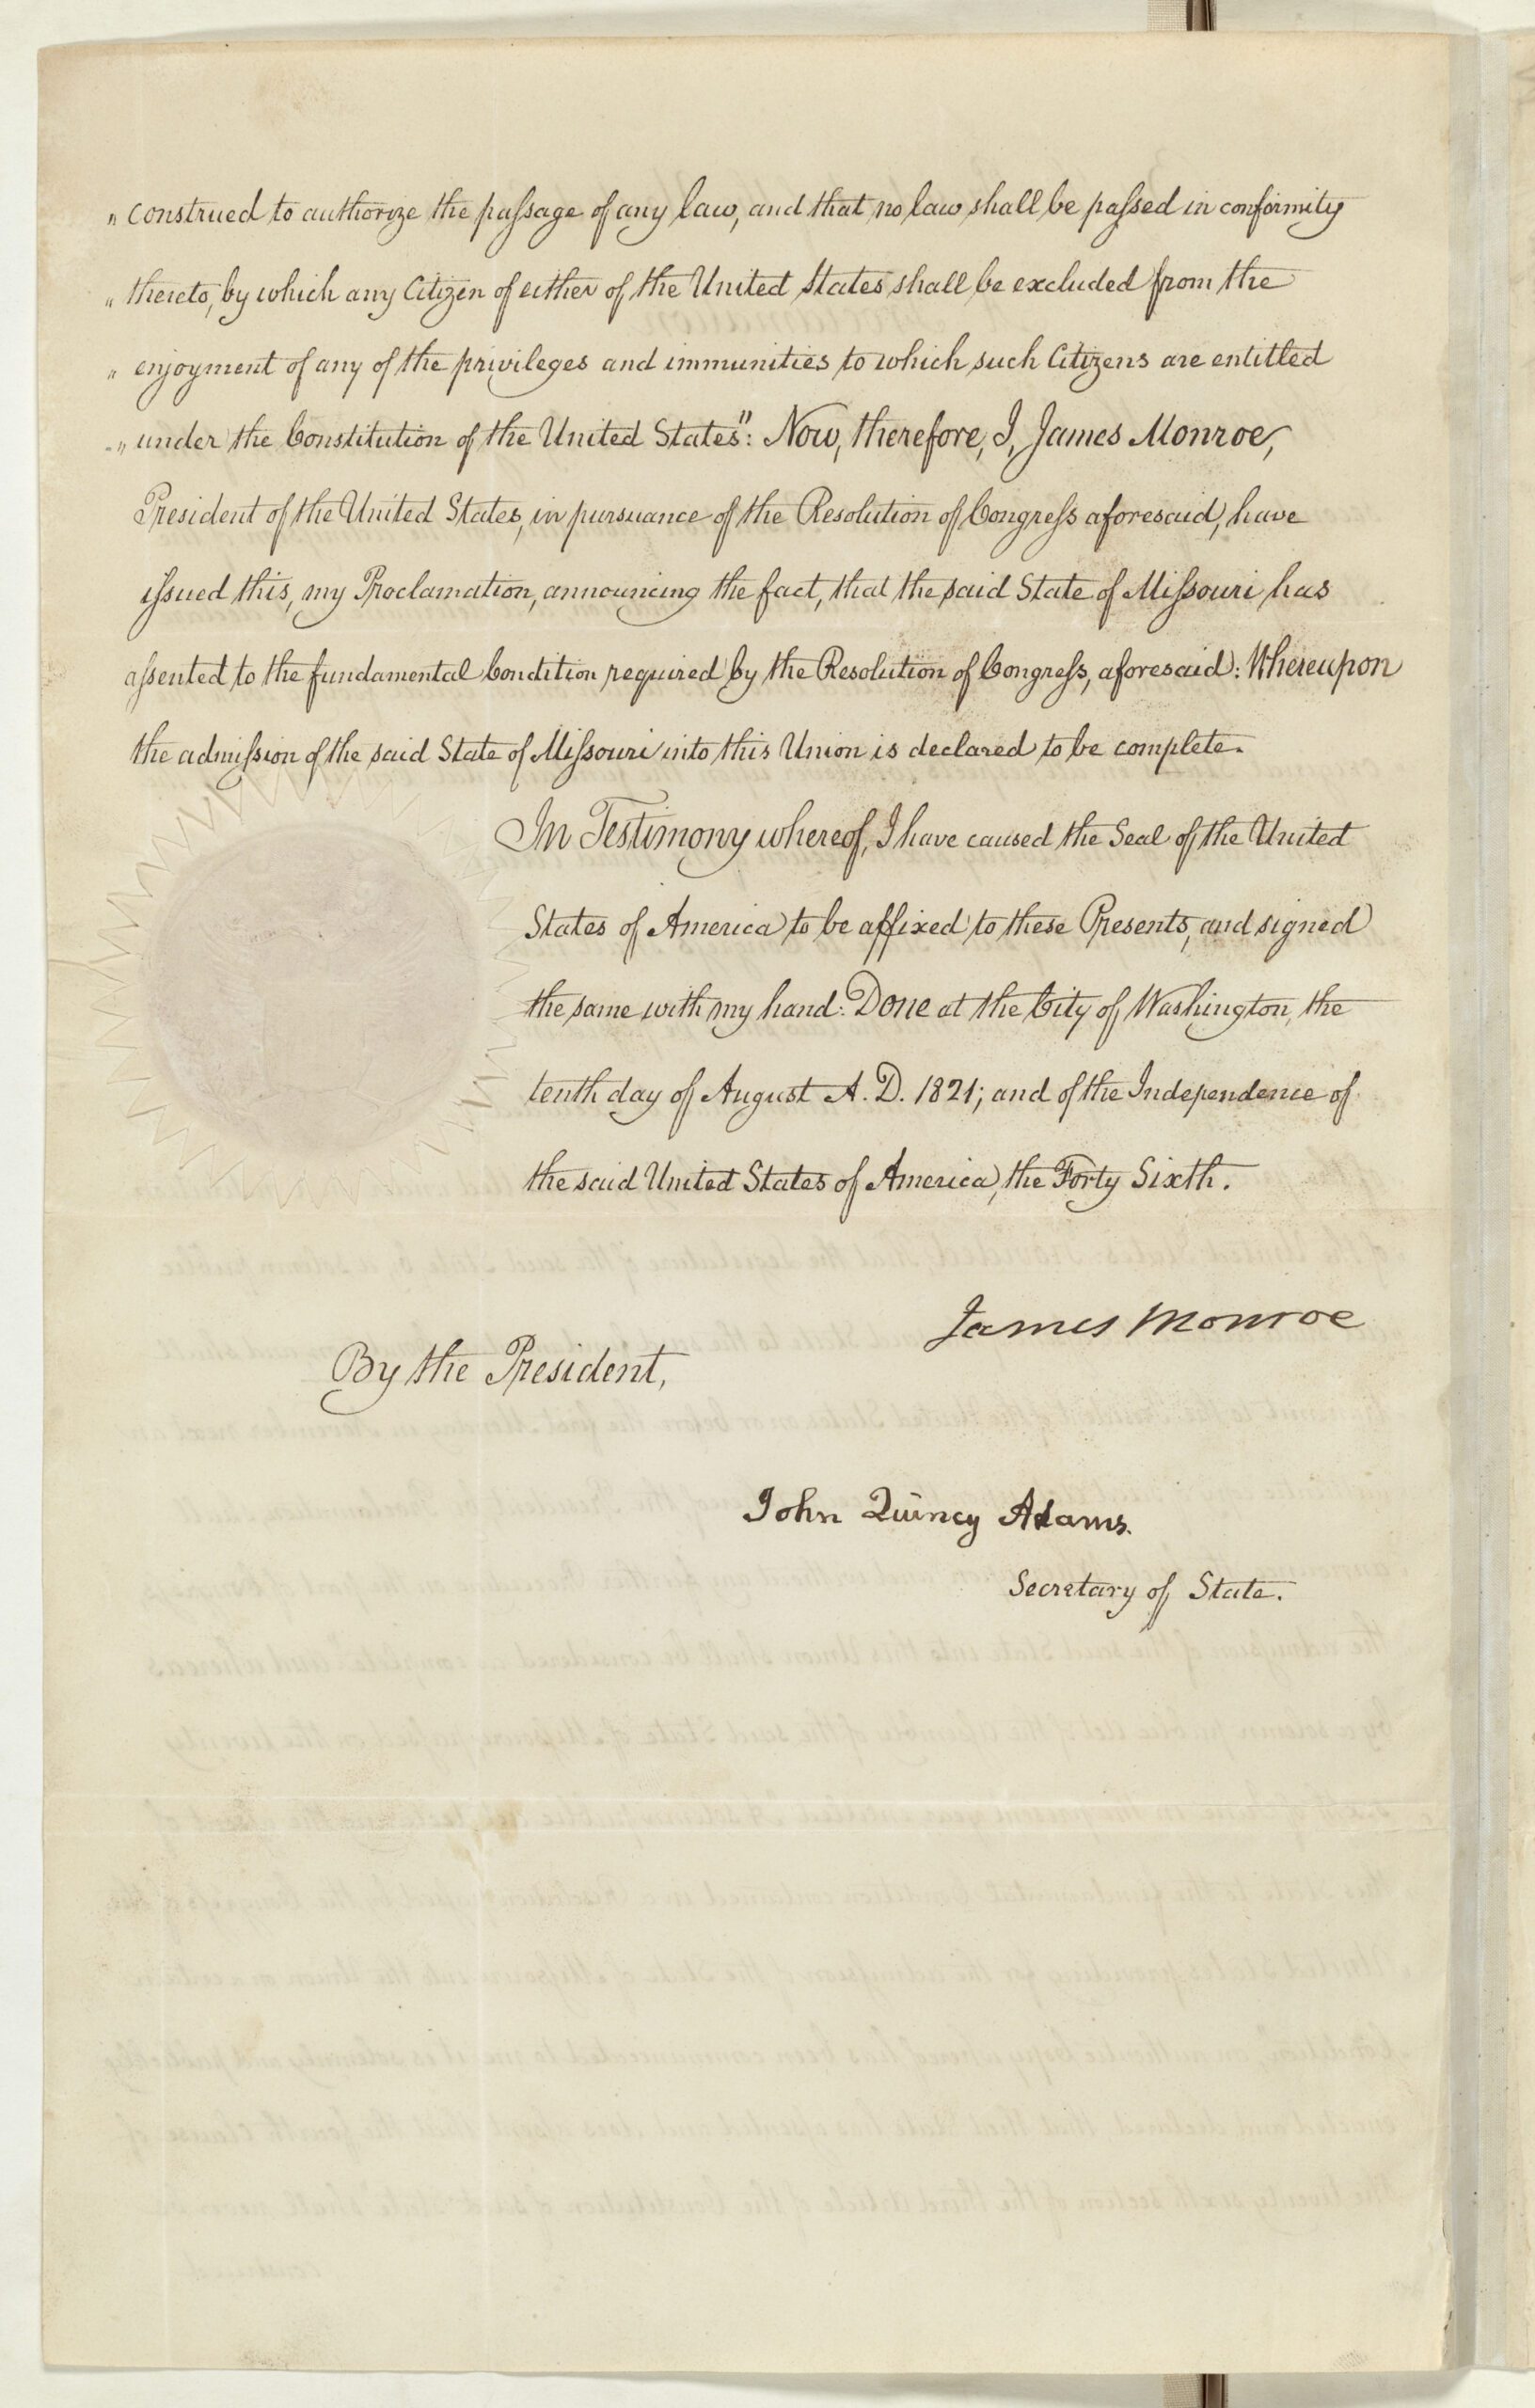 " construed to authorize the paſsage of any law, and that no law shall be paſsed in conformity
" thereto, by which any Citizen of either of the United States shall be excluded from the
" enjoyment of any of the privileges and immunities to which such Citizens are entitled
" under the Constitution of the United States": Now, therefore, I, James Monroe,
President of the United States, in pursuance of the Resolution of Congreſs aforesaid, have
iſsued this, my Proclamation, announcing the fact, that the said State of Miſsouri has
aſsented to the fundamental Condition required by the Resolution of Congreſs, aforesaid: Whereupon
the admiſsion of the said State of Miſsouri into this Union is declared to be complete.
In Testimony whereof, I have caused the Seal of the United
States of America to be affixed to these Presents, and signed
the same with my hand: Done at the City of Washington, the
tenth day of August A. D. 1821; and of the Independence of
the said United States of America, the Forty Sixth.
James Monroe
By the President,
John Quincy Adams.
Secretary of State.